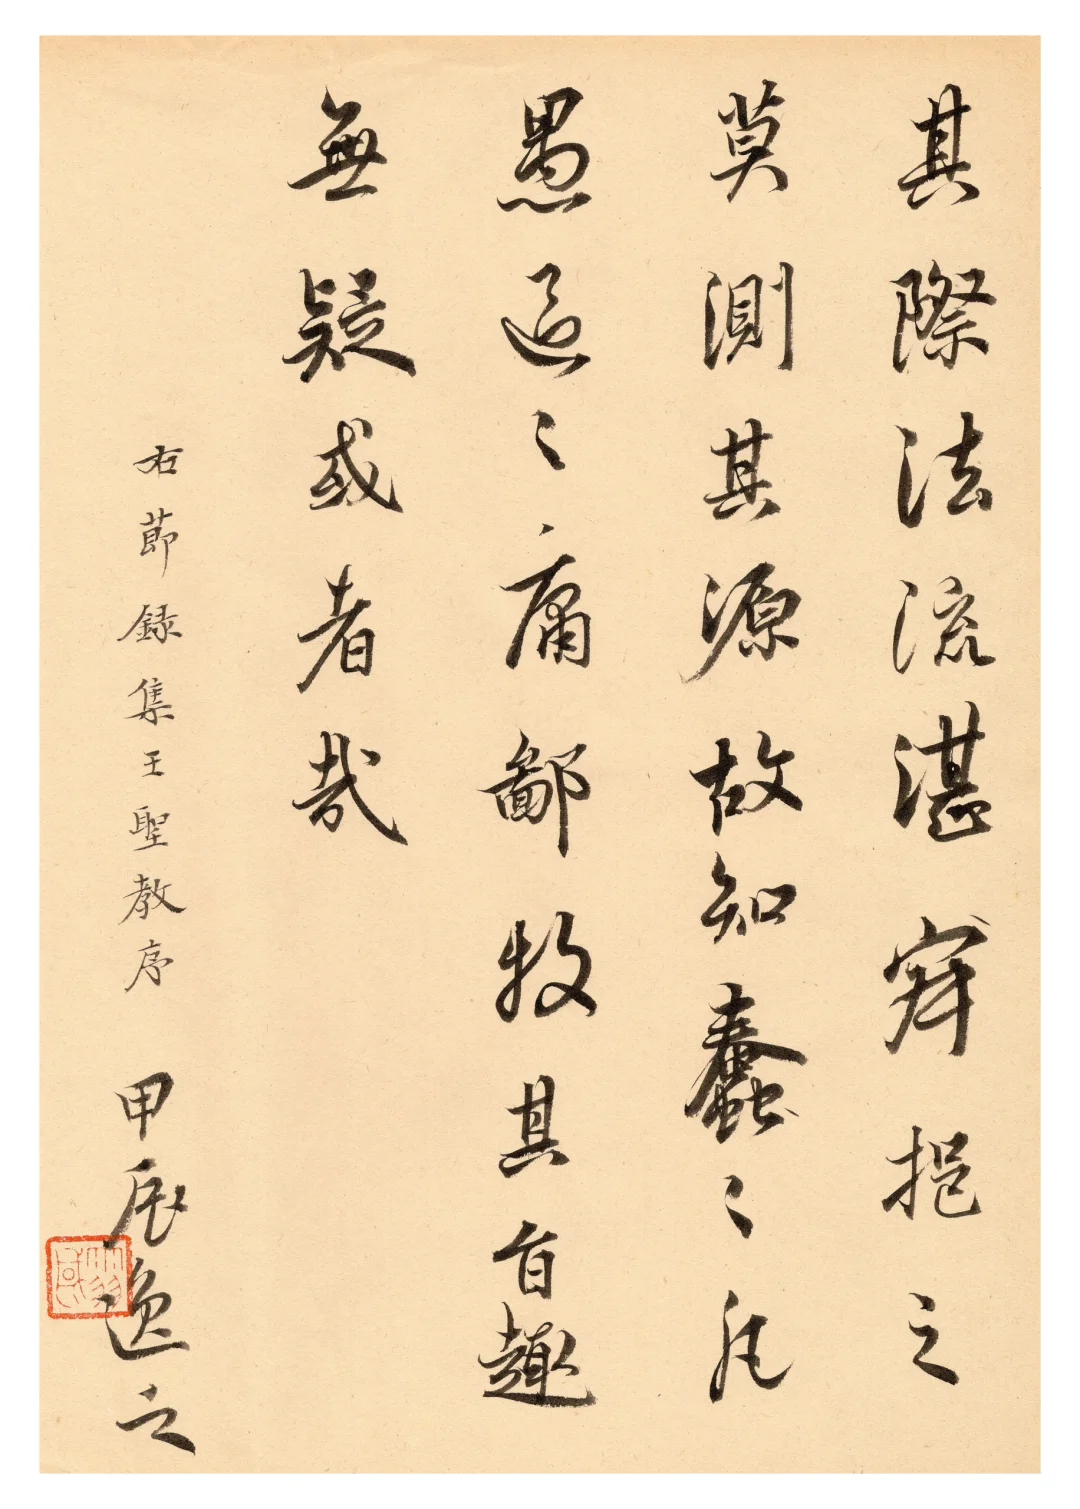 其際法流湛寂挹之
莫測其源故知蠢〻凡
愚區〻庸鄙投其旨趣
無疑或者哉
右節錄集王聖教序 甲辰逸之